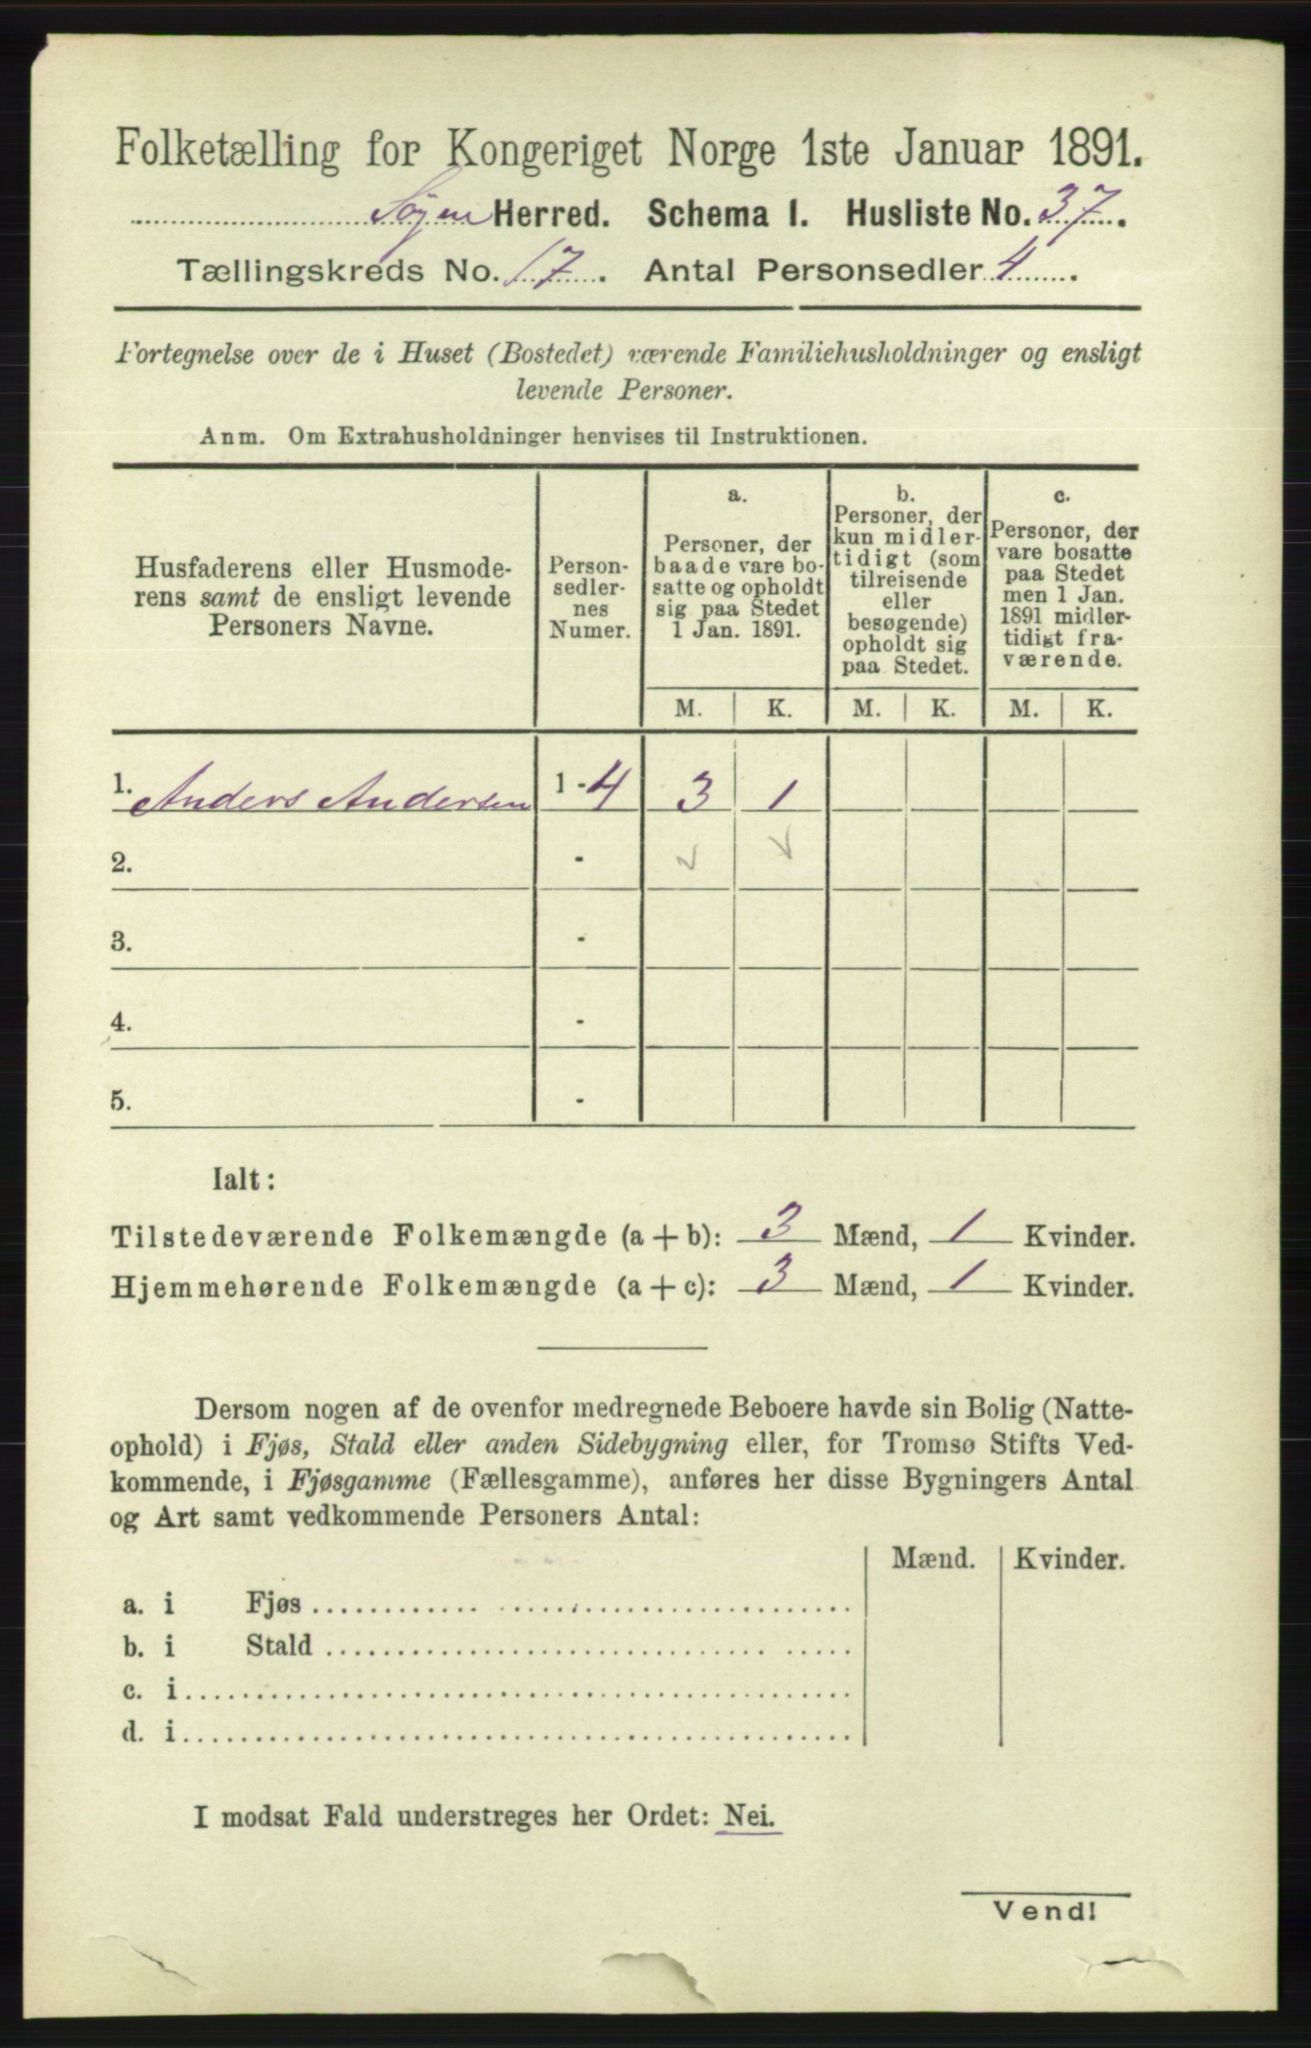 Folketælling for Kongeriget Norge 1ste Januar 1891.
Søgne Herred. Schema I. Husliste No. 37.
Tællingskreds No. 17. Antal Personsedler 4.
Fortegnelse over de i Huset (Bostedet) værende Familiehusholdninger og ensligt
levende Personer.
Anm. Om Extrahusholdninger henvises til Instruktionen.
Husfaderens eller Husmode-
rens samt de ensligt levende
Personers Navne.
Person-
sedler-
nes
Numer.
a.
Personer, der
baade vare bo-
satte og opholdt
sig paa Stedet
1 Jan. 1891.
b.
Personer, der
kun midler-
tidigt (som
tilreisende
eller
besøgende)
opholdt sig
paa Stedet.
c.
Personer, der
vare bosatte
paa Stedet
men 1 Jan.
1891 midler-
tidigt fra-
værende.
M. K. M. K. M. K.
1. Anders Andersen 1 - 4 3 1
2. -
3. -
4. -
5. -
Ialt:
Tilstedeværende Folkemængde (a + b): 3 Mænd, 1 Kvinder.
Hjemmehørende Folkemængde (a + c): 3 Mænd, 1 Kvinder.
Dersom nogen af de ovenfor medregnede Beboere havde sin Bolig (Natte-
ophold) i Fjøs, Stald eller anden Sidebygning eller, for Tromsø Stifts Ved-
kommende, i Fjøsgamme (Fællesgamme), anføres her disse Bygningers Antal
og Art samt vedkommende Personers Antal:
Mænd. Kvinder.
a. i Fjøs
b. i Stald
c. i
d. i
I modsat Fald understreges her Ordet: Nei.
Vend!